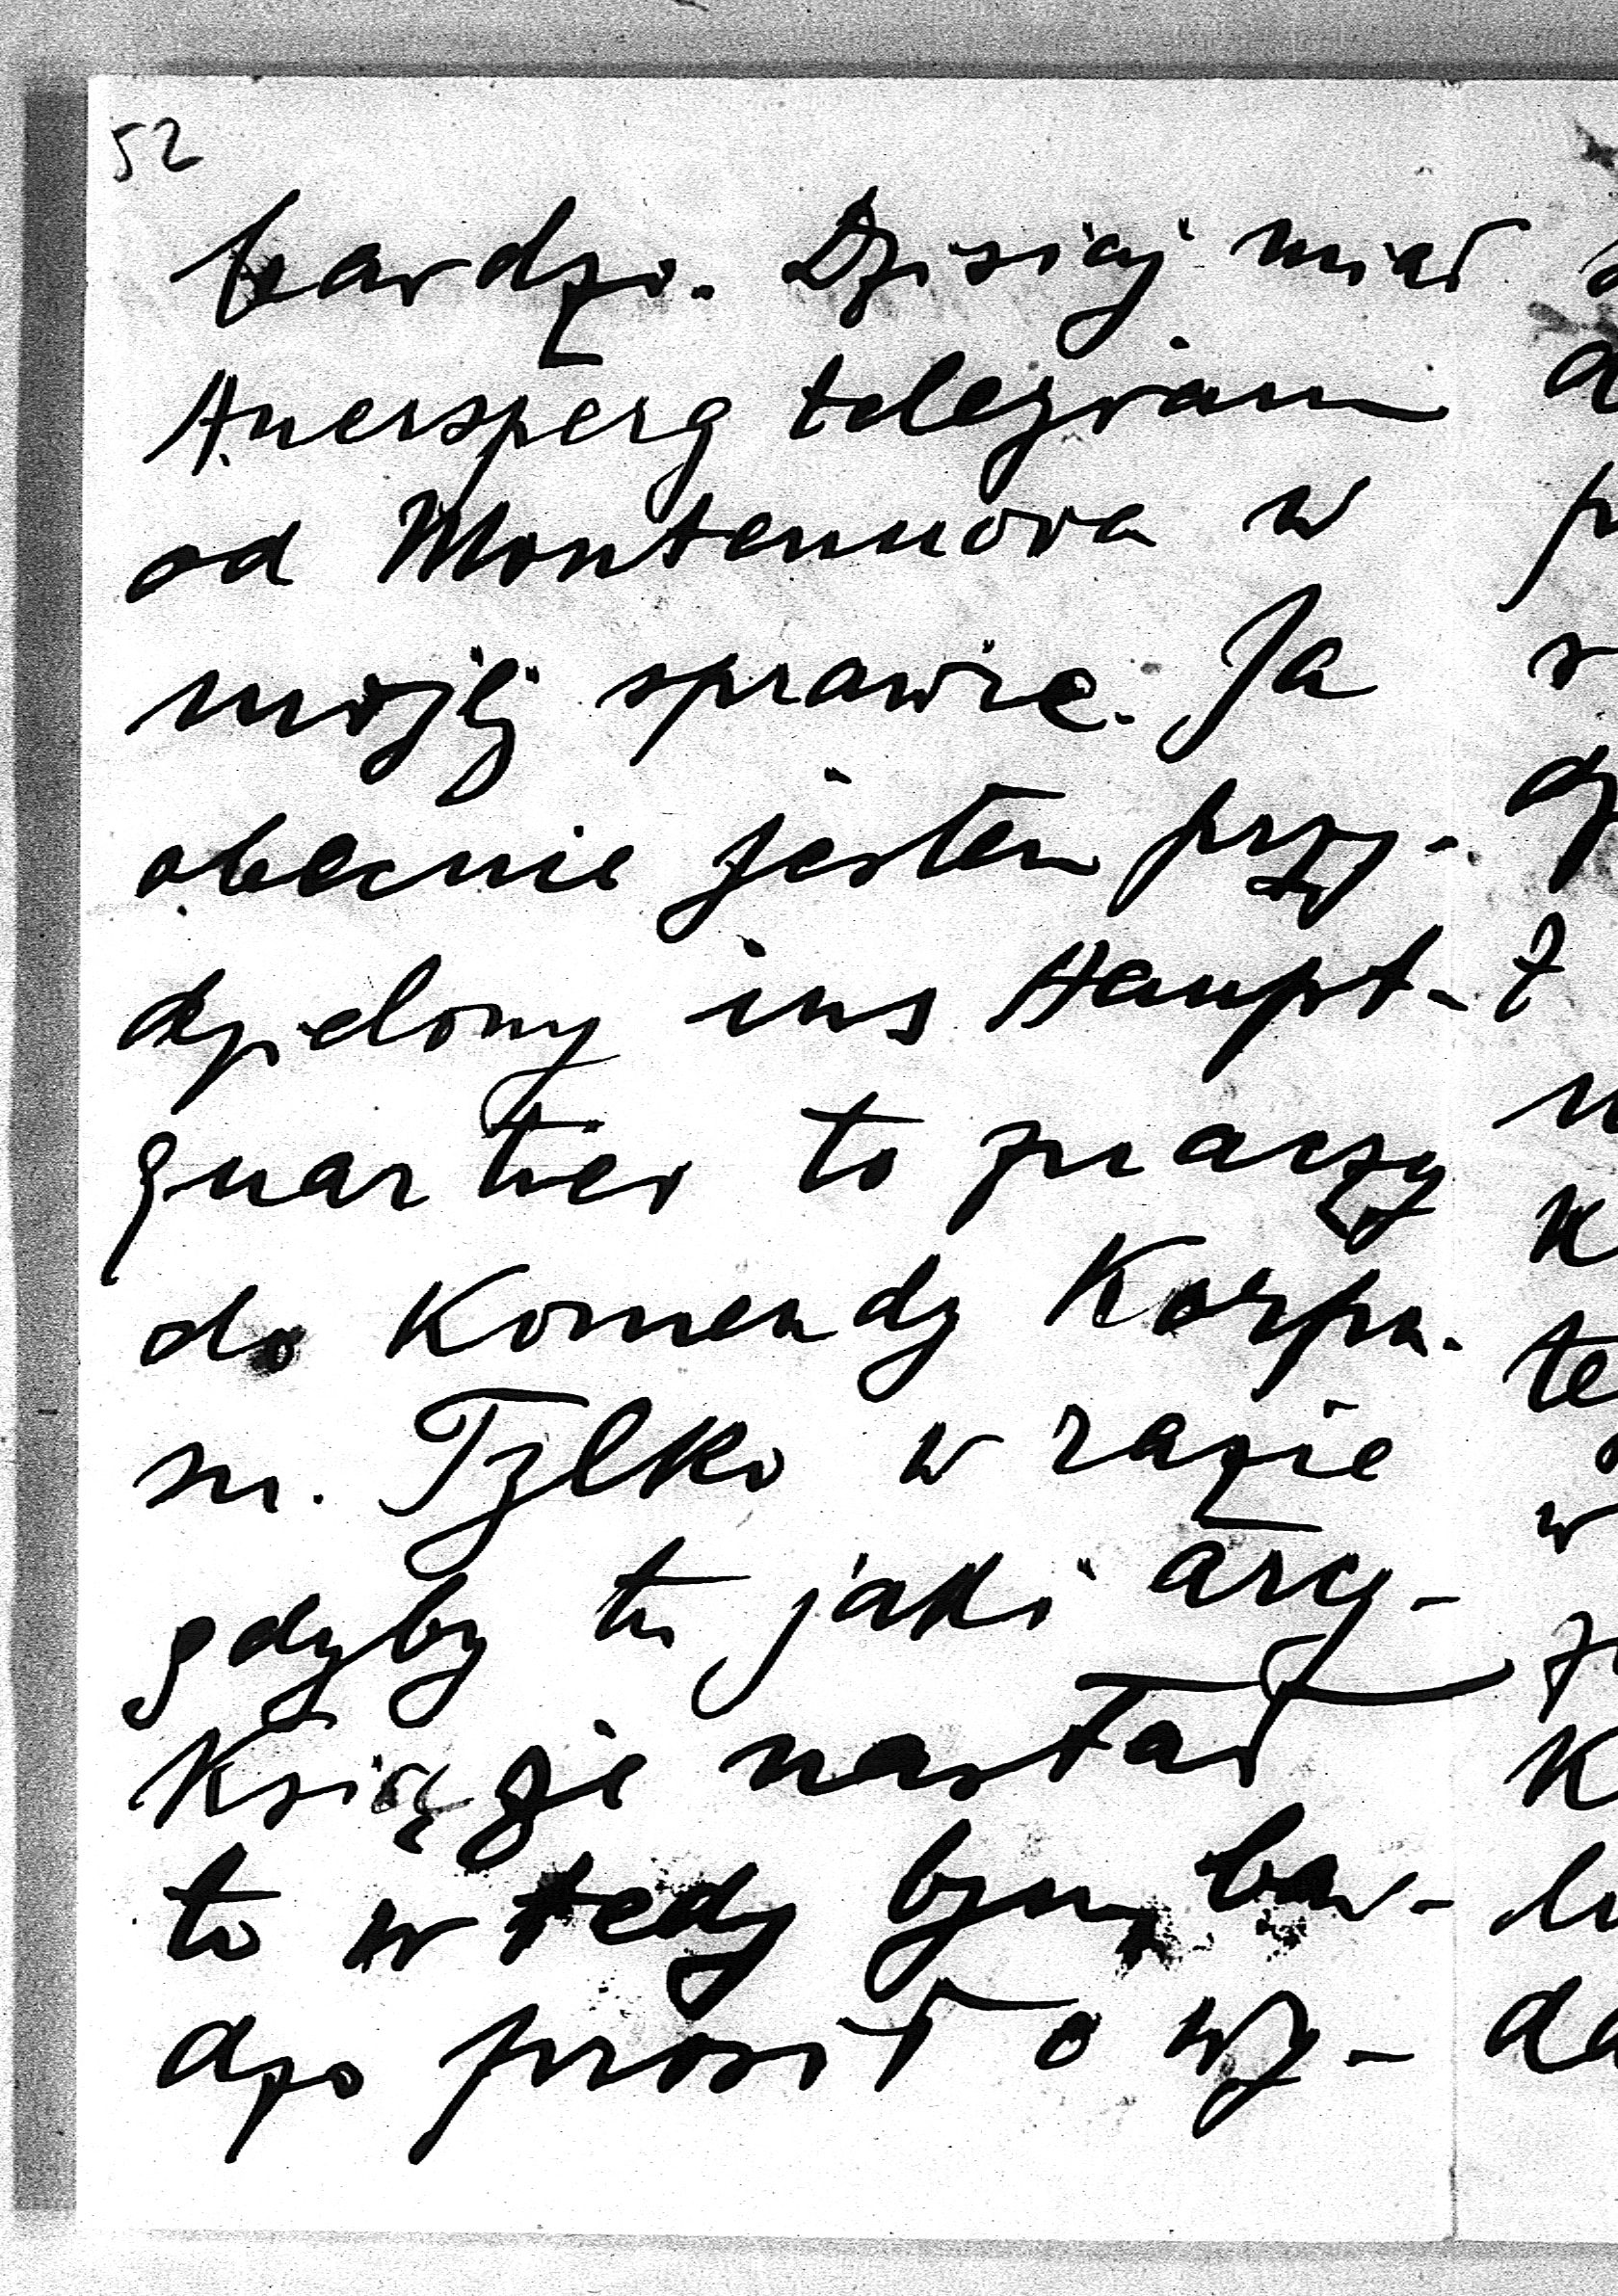 52
bardzo. Dzisiaj miał
Auersperg telegram
od Montenuova w
mojej sprawie. Ja
obecnie jestem przy-
dzielony ins Haupt-
quartier to znaczy
do Komendy Korpu-
su. Tylko w razie
gdyby tu jaki arcy-
Książe nastał
to wtedy bym bar-
dzo prosił o wy-